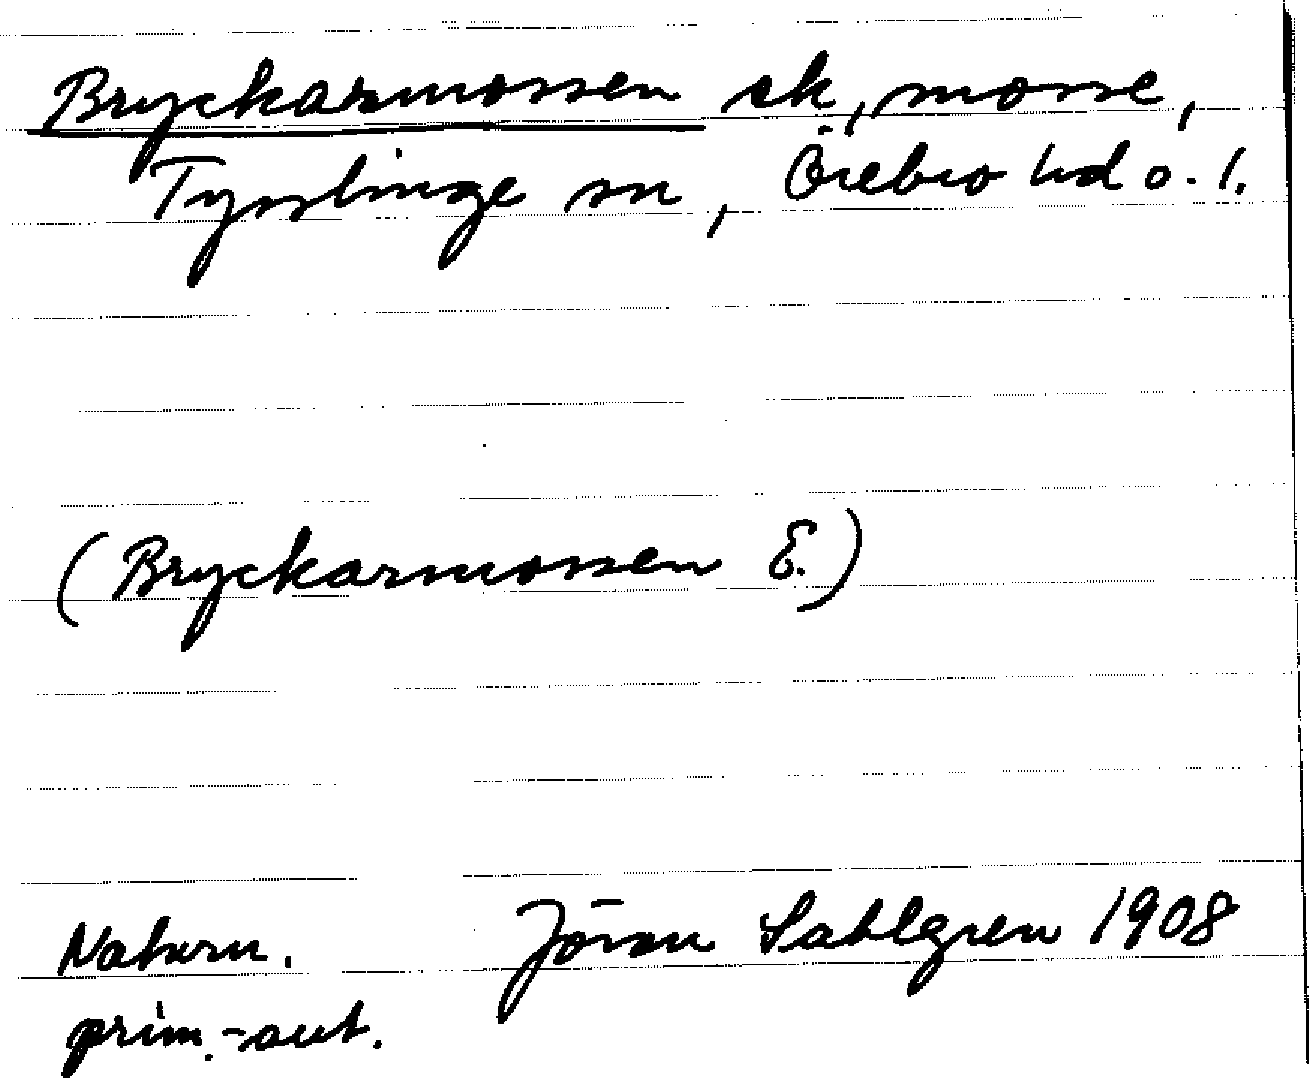 Bryckarmossen sk, mosse,
Tysslinge sn, Örebro hd o. l.
(Bryckarmossen E.)
Naturn. Jöran Sahlgren 1908
prim.-aut.